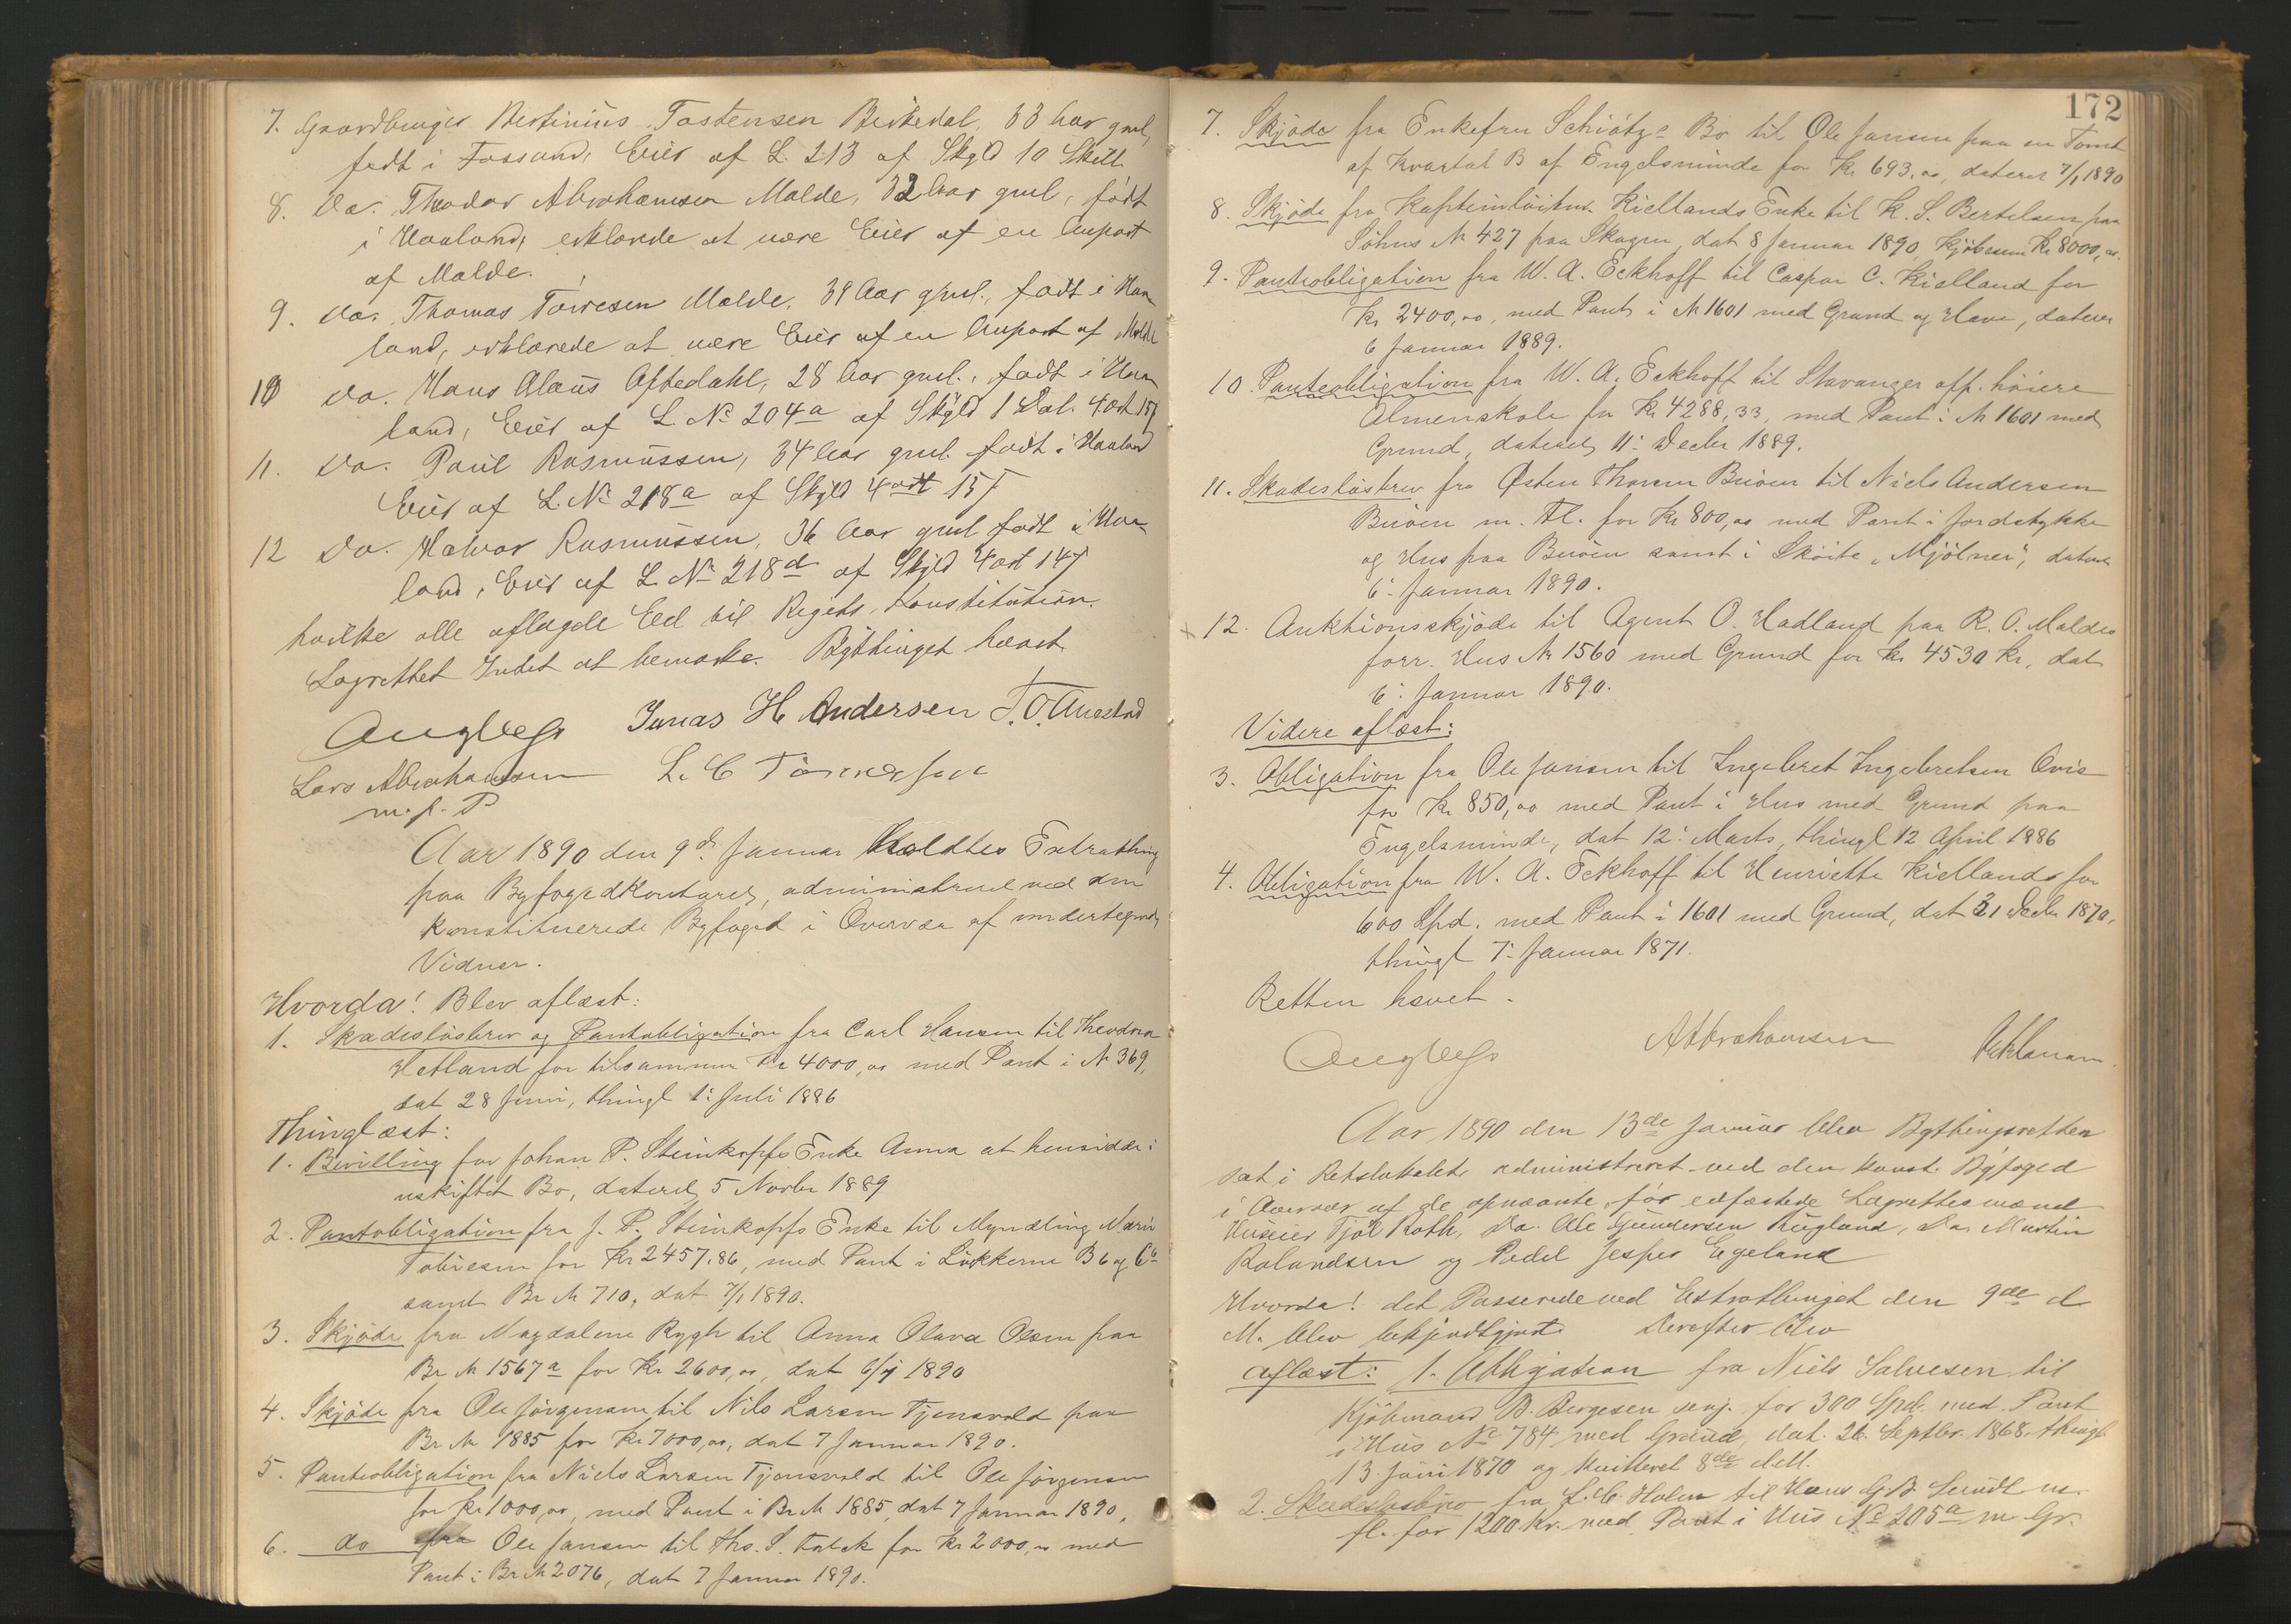 7. Gaardbruger Bertinius Tostensen Birkedal, 33 Aar gml,
født i Fossand, Eier af L. 213 af Skyld 10 Skill
8. Do. Theodor Abrahamsen Malde, 32 Aar gml, født
i Haaland, erklærede at være Eier af en Anpart
af Malde.
9. Do. Thomas Torresen Malde, 39 Aar gml., født i Haa
land, erklærede at være Eier af en Anpart af Malde
10 Do. Hans Claus Aftedahl, 28 Aar gml., født i Haa
land, Eier af L. No 204a af Skyld 1 Dal. 4 ort 15
11. Do. Paul Rasmussen, 34 Aar gml. født i Haaland
Eier af L. No 218a af Skyld 4 ort 15
12 Do. Halvor Rasmussen, 36 Aar gml født i Haa
land, Eier af L. No 218d af Skyld 4 ort 14
hvilke alle aflagde Ed til Rigets Konstitution.
Lagrettet Intet at bemærke. Bythinget hævet
Jonas H Andersen T. O. Auestad
Lars Abrahamsen L. C Tønnesen
m. p. P
Aar 1890 den 9de Januar holdtes Extrathing
paa Byfogedkontoret, administreret ved den
konstituerede Byfoged i Overvær af undertegnede
Vidner.
Hvorda! Blev aflæst:
1. Skadesløsbrev og Pantobligation fra Carl Hansen til Theodora
Hetland for tilsammen Kr 4000,00 med Pant i No 369,
dat 28 Juni, thingl 1: Juli 1886
Thinglæst:
1. Bevilling for Johan P. Steinkopfs Enke Anna at hensidde i
uskiftet Bo, dateret 5 Novbr 1889
2. Pantobligation fra J. P. Steinkopfs Enke til Myndling
Tobiesen for Kr 2457.86, med Pant i Løkkerne B6 og C6
samt Br No 710, dat 7/1 1890.
3. Skjøde fra Magdalene Rygh til Anna Olava Olsen paa
Br No 1567a for Kr 2600,00, dat 6/1 1890
4. Skjøde fra Ole Jørgensen til Nils Larsen Tjensvold paa
Br No 1885 for Kr 7000,00, dat 7 Januar 1890.
5. Panteobligation fra Niels Larsen Tjensvold til Ole Jørgensen
for Kr 1000,00, med Pant i Br No 1885, dat 7 Januar 1890,
6. do fra Ole Jansen til Ths. S. Falck for Kr 2000,00 med
Pant i Br No 2076, dat 7 Januar 1890.
172
7. Skjøde fra Enkefru Schiøtz's Bo til Ole Jansen paa en Tomt
af Kvartal B af Engelsminde for Kr 693,00, dateret 7/1 1890
8. Skjøde fra Kapteinløitnt Kiellands Enke til K. S. Bertelsen paa
Søhus No 427 paa Skagen, dat 8 Januar 1890, Kjøbesum Kr 8000,00.
9. Panteobligation fra W. A. Eckhoff til Caspar C. Kielland for
Kr 2400,00, med Pant i No 1601 med Grund og Have, dateret
6 Januar 1889.
10. Panteobligation fra W. A. Eckhoff til Stavanger off. høiere
Almenskole for Kr 4288,33, med Pant i No 1601 med
Grund, dateret 11: Decbr 1889.
11. Skadesløsbrev fra Østen Thorsen Buøen til Niels Andersen
Buøen m. Fl. for Kr 800,00 med Pant i Jordstykke
og Hus paa Buøen samt i Skøite "Mjølner", dateret
6: Januar 1890.
x 12. Auktionsskjøde til Agent O. Hadland paa R. O. Maldes
forr. Hus No 1560 med Grund for Kr 4530 Kr, dat
6: Januar 1890.
Videre aflæst:
3. Obligation fra Ole Jansen til Ingebret Ingebretsen Qvie
for Kr 850,00 med Pant i Hus med Grund paa
Engelsminde, dat 12: Marts, thingl 12 April 1886
4. Obligation fra W. A. Eckhoff til Henriette Kiellands for
600 Spd. med Pant i 1601 med Grund, dat 21 Decbr 1870,
thingl 7: Januar 1871.
Retten hævet.
AAbrahamsen
Aar 1890 den 13de Januar blev Bythingsretten
sat i Retslokalet administreret ved den konst. Byfoged
i Overvær af de opnævnte, før edfæstede Lagrettesmænd
Huseier Tjøl Roth, Do. Ole Gundersen Rugland, Do. Martin
Rolandsen og Pedel Jesper Egeland
Hvorda! det Passerede ved Extrathinget den 9de d
M. blev bekjendtgjort. Derefter blev
aflæst: 1. Obligation fra Niels Salvesen til
Kjøbmand B. Bergesen senj. for 300 Spd. med Pant
i Hus No 784 med Grund, dat. 26. Septbr. 1868, thingl
13. Juni 1870 og kvitteret 8de ds M.
2. Skadesløsbrev fra L. C. Holm til Hans G. B. Sundt m.
fl. for 1200 Kr. med Pant i Hus No 205a m Gr.